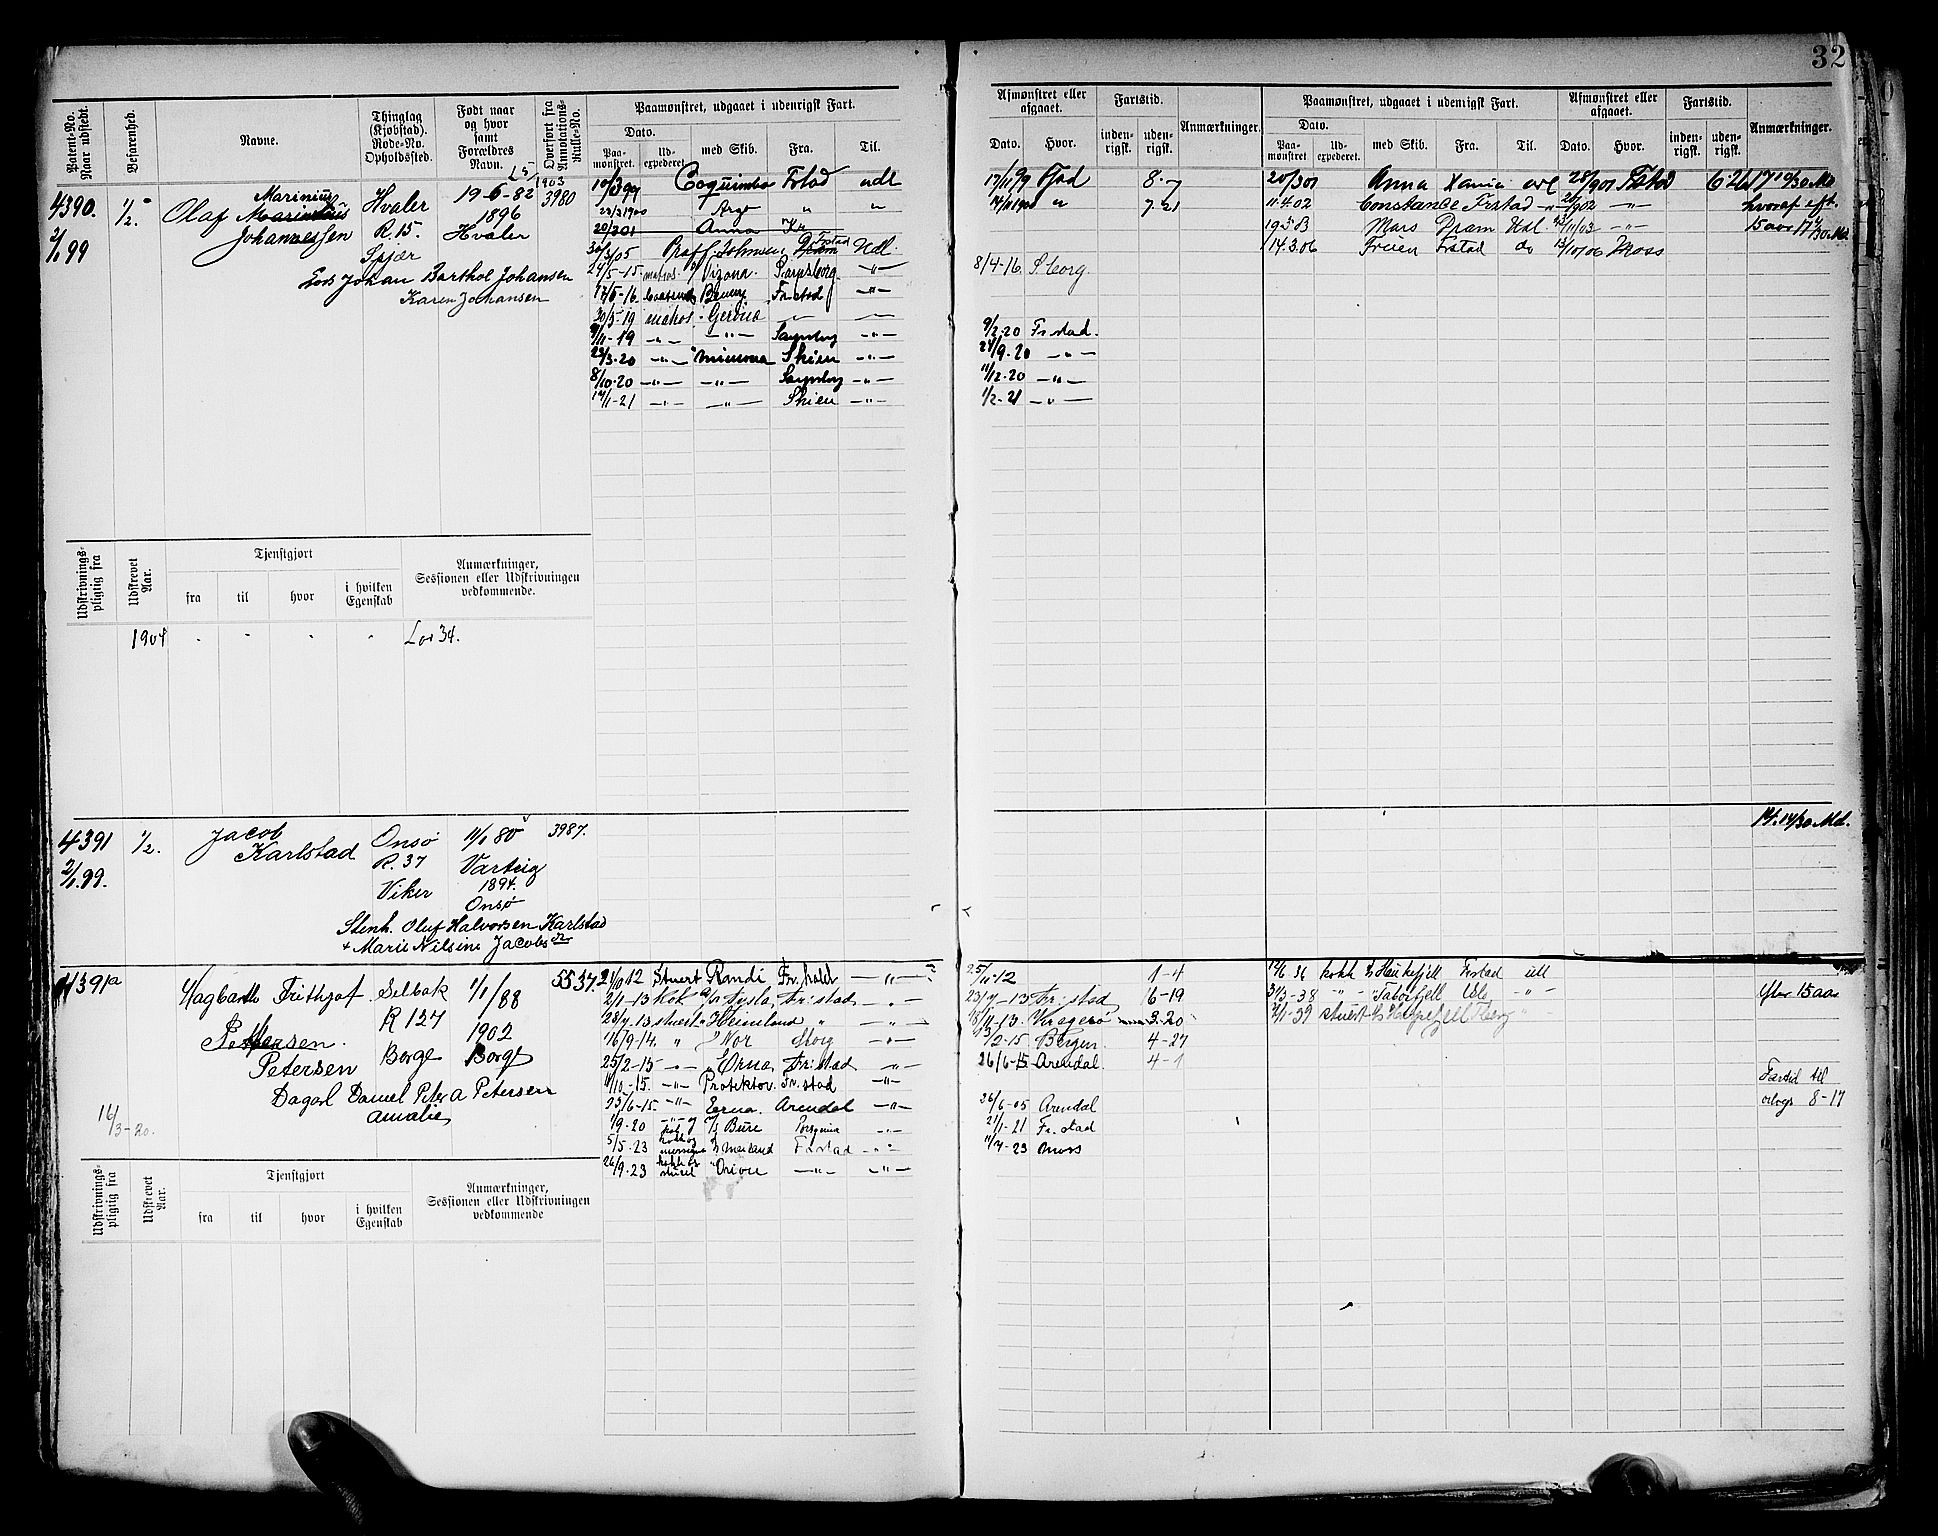 32
Patent-No. Naar udstedt.
Befarenhed.
Navne.
Thinglag (Kjøbstad). Rode-No. Opholdssted.
Født naar og hvor samt Forældres Navn.
Overført fra Annotations-Rulle-No.
Paamønstret, udgaaet i udenrigsk Fart.
Dato.
Paa-mønstret.
Ud-expederet.
med Skib.
Fra.
Til.
Afmønstret eller afgaaet.
Dato.
Hvor.
Fartstid.
inden-rigsk.
uden-rigsk.
Anmærkninger.
Paamønstret, udgaaet i udenrigsk Fart.
Dato.
Paa-mønstret
Ud-expederet.
med Skib.
Fra.
Til.
Afmønstret eller afgaaet.
Dato.
Hvor.
Fartstid.
inden-rigsk.
uden-rigsk.
Anmærkninger.
4390.
2/1 99
1/2
Olaf Marinius
Johannessen
Hvaler
R. 15.
Spjær
19-6-82
1896
Hvaler
1903
3980
Lods Johan Barthol Johansen
Karen Johansen
10/3 99 Coquimbo Frstad udl
23/3 1900 Argo " "
20/3 01 Anna Xa
30/3 05 Johnsen Dram Frstad Udl.
29/5-15 matros Arizona. Sarpsborg -"-
17/6-16. Frstad -"-
30/5-19 matros Gerona -"- -"-
/11-19 -"- -"- Sarpsborg -"-
23/3-20 -"- Minerva Skien -"-
8/10-20 -"- -"- Sarpsborg -"-
14/1-21 -"- -"- Skien -"-
17/11 99 Fstad 8-7
14/11 1900 " 7-21
8/4-16. S.borg
9/2-20 Fr.stad.
24/9-20 -"-
11/12-20 -"-
1/2-21 -"-
20/3 01 Anna Xania 28/9 01 Frstad 6 26
11-4-02 Constance Frstad -"- /9 02 -"-
19-3-03 Mars Dram Udl. /11/03 -"-
14.3.06 Freien Frstad do 13/10/06 Moss
17 19/30 Md
hvoraf eft.
15 aar 17 /30 Md.
Udskrivnings-pligtig fra
Udskrevet Aar.
Tjenstgjort
fra
til
hvor
i hvilken Egenskab
Anmærkninger, Sessionen eller Udskrivningen vedkommende.
1904 - - - - Lov 34.
4391
2/1 99.
1/2.
Jacob
Karlstad
Onsø
R. 37
Viker
11/1 80
Varteig
1894.
Onsø
3987.
Stenh. Oluf Halvorsen Karlstad
+ Marie Nilsine Jacobsdr
14 14/30 Md.
4391a
Hagbarth Frithjof
Petersen
Selbak
R 127
Borge
1/1/88
1902
Borge
5537.
Dagarb Daniel Peter A Petersen
Amalie
14/3-20.
2/10 12 Stuert Randi Fr.hald -"-
2/1-13 Kok Tysla Fr.stad -"-
28/7-13 stuert Heimland " -"-
16/9-14. " Nor Sborg -"-
25/2-15 -"- Erna Fr.stad -"-
11/10-15. -"- Protektor. Fr.stad -"-
23/6-15. -"- Erna. Arendal -"-
1/9-20 Bure -"-
5/5-23 Fr.stad -"-
26/9-23 kokk og stuert Orion -"- -"-
25/11-12 1-4
23/7-13 Fr.stad 6-19
18/11-13. Kragerø 3-20
13/2-15. Bergen. 4-27
26/6-15 Arendal 4-1
26/6-05 Arendal
21/1-21 Fr.stad
11/7-23 Moss
12/6-36 kokk Haukefjell Frstad utl
31/3-38 -"- Taborfjell Oslo -"-
/1-39 stuert
efter 15 aar
Fartid til
orlogs 8-17
Udskrivnings-pligtig fra
Udskrevet Aar.
Tjenstgjort
fra
til
hvor
i hvilken Egenskab
Anmærkninger, Sessionen eller Udskrivningen vedkommende